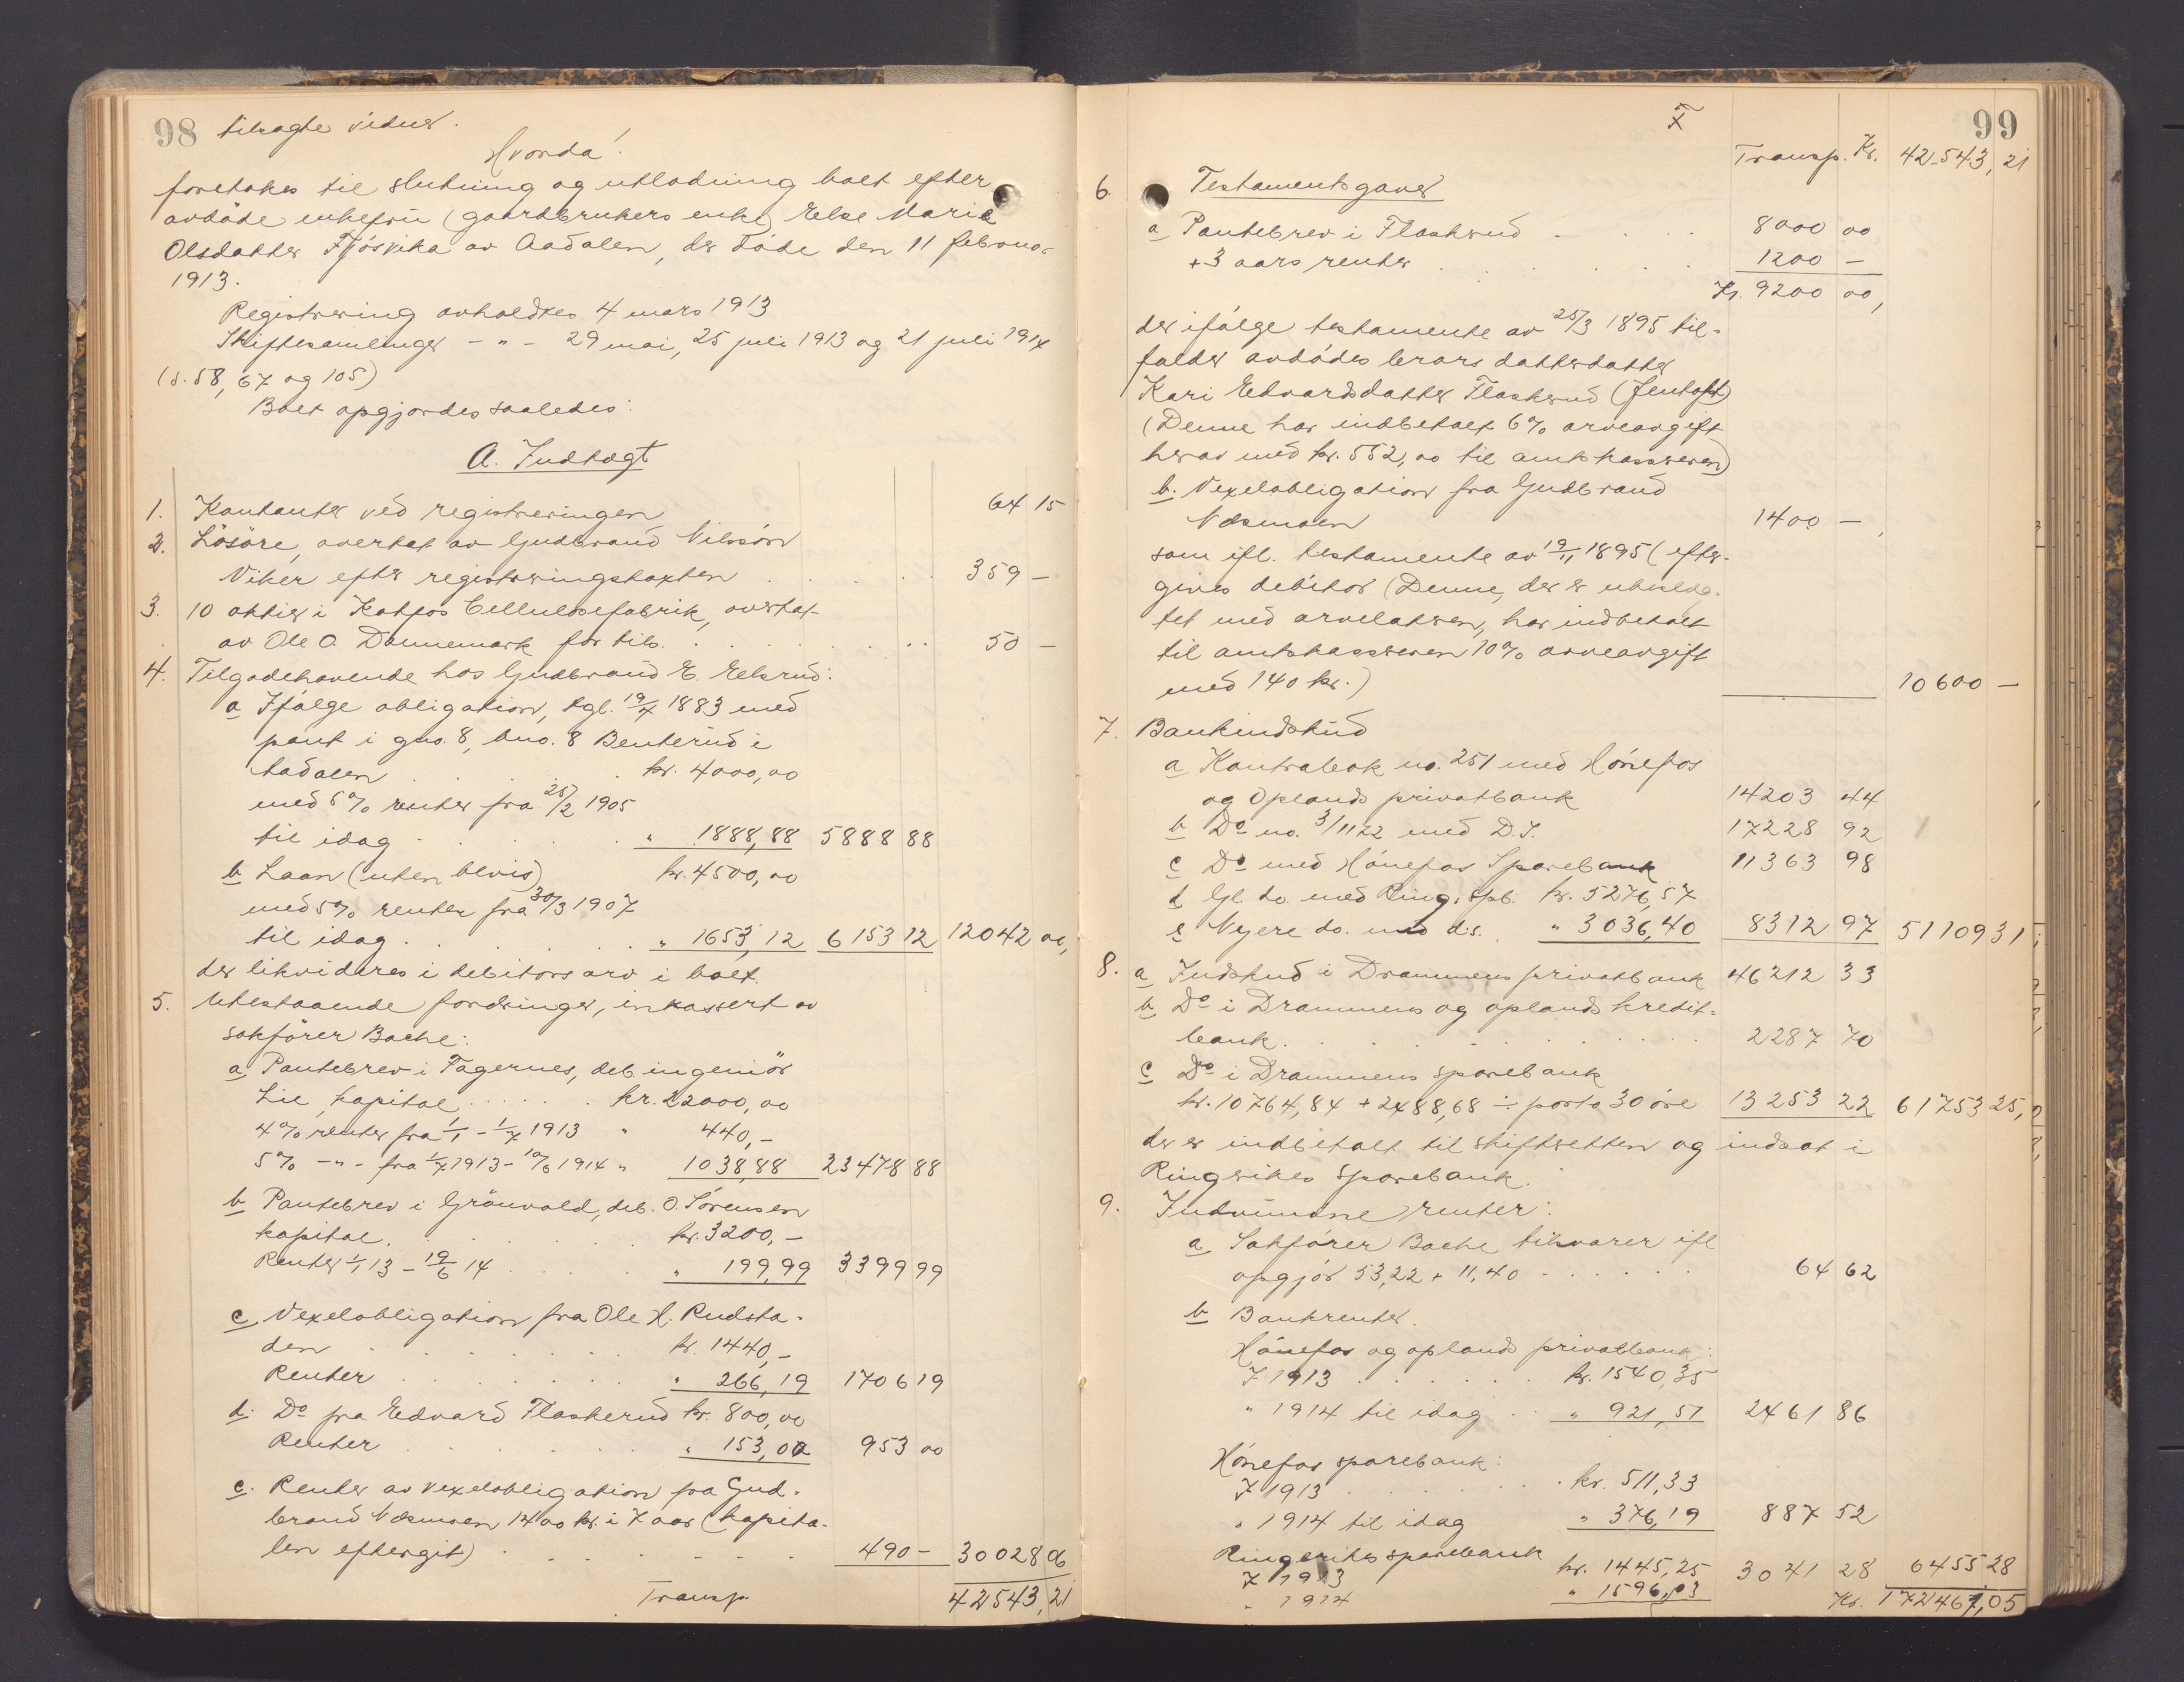 98 tilsagte vidner.
Hvorda:
foretokes til slutning og utlodning boet efter
avdöde enkefru (gaardbrukers enke) Else Marie
Olsdatter Fjösvika av Aadalen, der döde den 11 februar
1913.
Registrering avholdtes 4 mars 1913
Skiftesamlinger - " - 29 mai, 25 juli 1913 og 21 juli 1914
(s. 58, 67 og 105)
Boet opgjordes saaledes:
A. Indtægt
1. Kontanter ved registreringen 64 15
2. Lösöre, overtat av Gudbrand Nilssön
Viker efter registreringstaxten . . . . . 359 -
3. 10 aktier i Katfos Cellulosefabrik, overtat
av Ole O. Dannemark for tils. . . . . . . . 50 -
4. Tilgodehavende hos Gudbrand E. Elsrud:
a Ifölge obligation, tgl. 19/4 1883 med
pant i gno. 8, bno. 8 Benterud i
Aadalen . . . . . kr. 4000,00
med 5% renter fra 25/2 1905
til idag . . . . . " 1888,88 5888 88
b Laan (uten bevis) kr. 4500,00
med 5% renter fra 30/3 1907
til idag . . . . . " 1653,12 6153 12 12042 00,
der likvideres i debitors arv i boet.
5. Utestaaende fordringer, inkassert av
sakförer Bache:
a Pantebrev i Fagernes, deb. ingeniör
Lie, kapital . . . . . kr. 22000,00
4% renter fra 1/1 - 1/7 1913 " 440,-
5% - " - fra 1/7 1913 - 10/6 1914 " 1038,88 23478 88
b Pantebrev i Grönvold, deb. O. Sörensen
kapital . . . . . kr. 3200,-
Renter 1/1 13 - 19/6 14 . . . . " 199,99 3399 99
c Vexelobligation fra Ole H. Rudsta-
den . . . . . . kr. 1440,-
Renter . . . . . . " 266,19 1706 19
d. Do fra Edvard Flaskerud kr. 800,00
Renter . . . . . . " 153,00 953 00
e. Renter av vexelobligation fra Gud-
brand Næsmoen 1400 kr. i 7 aar (kapita-
len eftergit) . . . . . . . 490 - 30028 06
Transp. 42543,21
99
Transp. Kr. 42543,21
6. Testamentsgaver
a Pantebrev i Flaskerud . . . . 8000 00
+ 3 aars renter . . . . . . 1200 -
Kr. 9200 00,
der ifölge testamente av 25/3 1895 til-
falder avdödes brors datterdatter
Kari Edvardsdatter Flaskerud (Jentoft)
(Denne har indbetalt 6% arveavgift
herav med kr. 552,00 til amtskassereren)
b. Vexelobligation fra Gudbrand
Næsmoen 1400 -
som ifl. testamente av 19/11 1895 (efter-
gives debitor (Denne, der er ubeslæg-
tet med arveladeren, har indbetalt
til amtskassereren 10% arveavgift
med 140 kr.) 10600 -
7. Bankindskud
a Kontrabok no. 251 med Hönefos
og Oplands privatbank 14203 44
b Do no. 3/1122 med D.S. 17228 92
c Do med Hönefos Sparebank 11363 98
d Gl. do. med Ring. spb. kr. 5276,57
e Nyere do. med d.s. " 3036,40 8312 97 51109 31
8. a Indskud i Drammens privatbank 46212 33
b Do i Drammens og oplands kredit-
bank . . . . . . . . . . . 2287 70
c Do i Drammens sparebank
kr. 10764,84 + 2488,68 ÷ porto 30 öre 13253 22 61753 25,
der er indbetalt til skifteretten og indsat i
Ringerikes sparebank.
9. Indvundne renter:
a Sakförer Bache tilsvarer ifl
opgjör 53,22 + 11,40 . . . . . 64 62
b Bankrenter.
Hönefos og oplands privatbank:
I 1913 . . . . . . kr. 1540,35
" 1914 til idag . . " 921,51 2461 86
Hönefos sparebank:
I 1913 . . . . . . kr. 511,33
" 1914 til idag " 376,19 887 52
Ringerikes sparebank
I 1913 kr. 1445,25 3041 28 6455 28
" 1914 " 1596,03 Kr. 172461,05